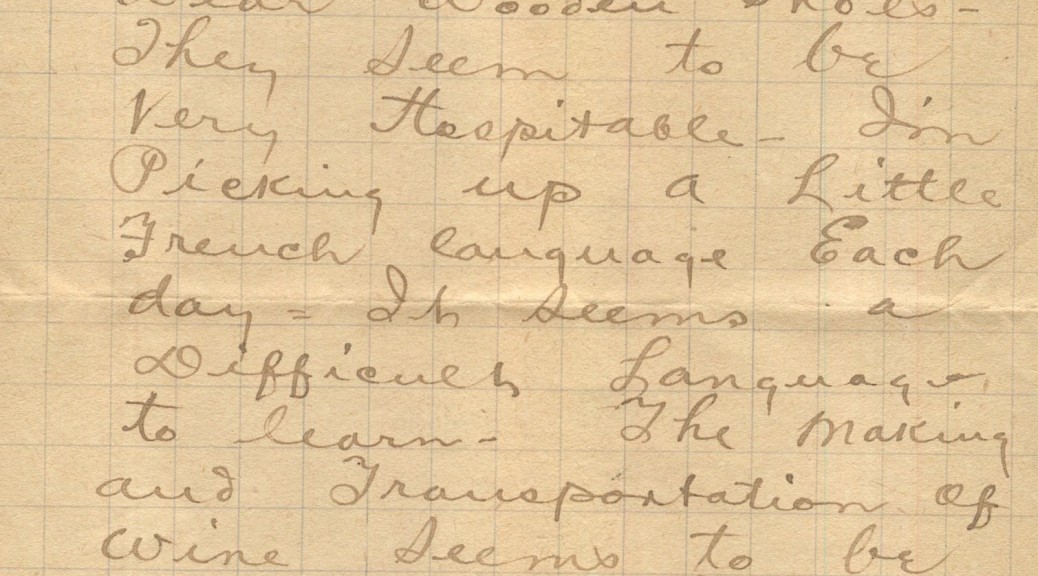 wear wooden shoes-
They seem to be
Very Hospitable- I'm
Picking up a Little
French language Each
day = It seems a
Difficult Language
to learn- The Making
and Transportation of
wine seems to be